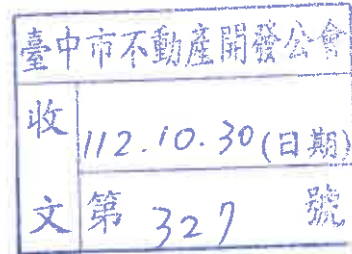 臺中市不動產開發公會
收文
112.10.30(日期)
第 327 號